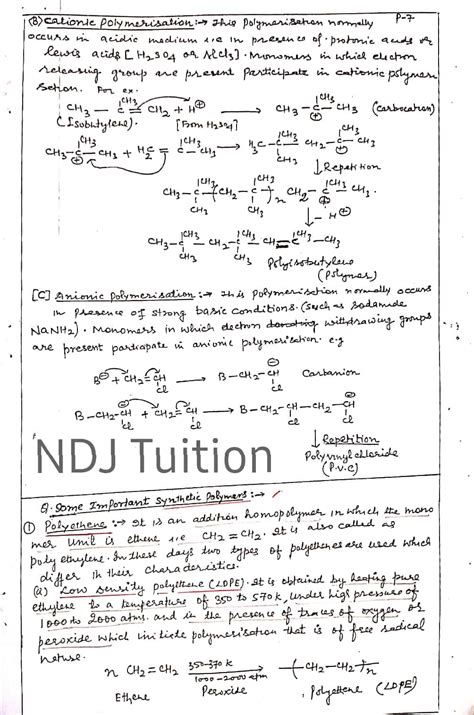 P-7
(B) Cationic Polymerisation :→ This polymerisation normally
occurs in acidic medium i.e in presence of protonic acids or
lewis acids [H2SO4 or AlCl3]. Monomers in which electron
releasing group are present participate in cationic polymeri-
sation. For ex.
CH3 – C(CH3) = CH2 + H⊕ → CH3 – C⊕(CH3) – CH3 (carbocation)
(Isobutylene). [From H2SO4]
CH3 – C⊕(CH3) – CH3 + H2C = C(CH3) – CH3 → H3C – C(CH3)(CH3) – CH2 – C⊕(CH3) – CH3
↓ Repetition
CH3 – C(CH3)(CH3) – (CH2 – C(CH3)(CH3))n CH2 – C⊕(CH3) – CH3.
↓ – H⊕
CH3 – C(CH3)(CH3) – CH2 – C(CH3)(CH3) – CH = C(CH3) – CH3
Polyisobutylene
(Polymer)
[C] Anionic polymerisation :→ This polymerisation normally occurs
in presence of strong basic conditions. (Such as sodamide
NaNH2). Monomers in which electron withdrawing groups
are present partcapate in anionic polymerisation. e.g
B⊖ + CH2 = CH(Cl) → B – CH2 – CH⊖(Cl) Carbanion
B – CH2 – CH⊖(Cl) + CH2 = CH(Cl) → B – CH2 – CH(Cl) – CH2 – CH⊖(Cl)
↓ Repetition
NDJ Tuition
Polyvinyl chloride
(P.V.C)
Q. Some Important Synthetic Polymers :→
① Polyethene :→ It is an addition homopolymer in which the mono
mer unit is ethene i.e CH2 = CH2. It is also called as
poly ethylene. In these days two types of polyethenes are used which
differ in their characteristics.
(a) Low density polyethene (LDPE). It is obtained by heating pure
ethylene to a temperature of 350 to 570K, under high pressure of
1000 to 2000 atms. and in the presence of traces of oxygen or
peroxide which initiate polymerisation that is of free radical
nature.
n CH2 = CH2 350-370 K → –(CH2 – CH2)n–
1000-2000 atm
Ethene Peroxide Polyethene (LDPE)